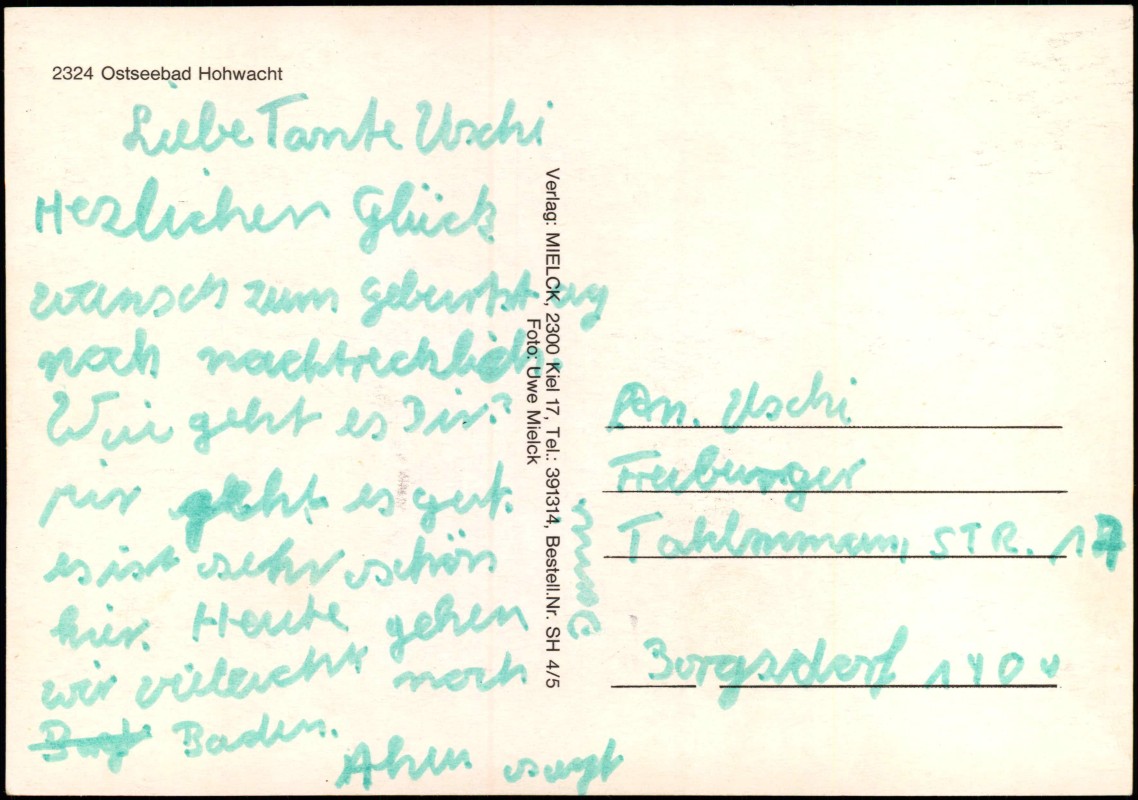 2324 Ostseebad Hohwacht
Liebe Tante Uschi
Hezlichen Glück
wunsch zum geburtstag
noch nachtreklich
Wie geht es Dir?
mir geht es gut.
es ist sehr schön
hier. Heute gehen
wir vieleicht noch
Baden.
sagt
Verlag: MIELCK, 2300 Kiel 17, Tel.: 391314, Bestell.Nr. SH 4/5
Foto: Uwe Mielck
An. Uschi
Freiburger
STR. 17
Borgsdorf 1404